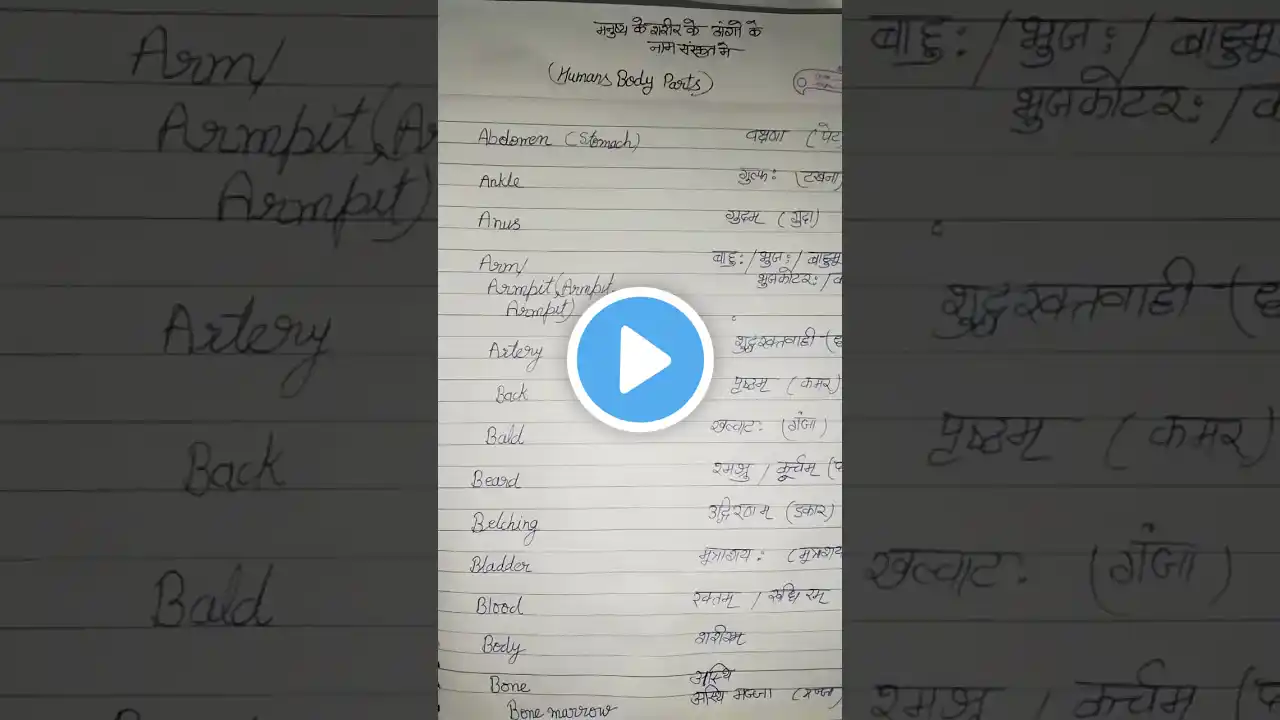 मनुष्य के शरीर के अंगो के
नाम संस्कृत मे
(Humans Body Parts)
Abdomen (Stomach) वक्षणा (पेट
Ankle गुल्फः (टखना)
Anus गुदम् (गुदा)
Arm/ बाहुः / भुजः / बाहुमू
Armpit (Armpit भुजकोटरः /
Armpit)
Artery शुद्धरक्तवाही
Back पृष्ठम् (कमर)
Bald खल्वाटः (गंजा)
Beard श्मश्रु / कूर्चम्
Belching उद्गिरणम् (डकार)
Bladder मूत्राशयः (मूत्राशय
Blood रक्तम् / रुधिरम्
Body शरीरम्
Bone अस्थि
Bone marrow अस्थि मज्जा (मज्जा)